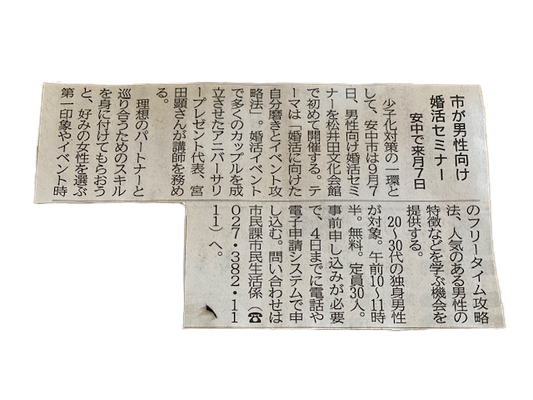 市が男性向け
婚活セミナー
安中で来月7日
少子化対策の一環と
して、安中市は9月7
日、男性向け婚活セミ
ナーを松井田文化会館
で初めて開催する。テ
ーマは「婚活に向けた
自分磨きとイベント攻
略法」。婚活イベント
で多くのカップルを成
立させたアニバーサリ
ープレゼント代表、宮
田顕さんが講師を務め
る。
理想のパートナーと
巡り合うためのスキル
を身に付けてもらおう
と、好みの女性を選ぶ
第一印象やイベント時
のフリータイム攻略
法、人気のある男性の
特徴などを学ぶ機会を
提供する。
20～30代の独身男性
が対象。午前10～11時
半。無料。定員30人。
事前申し込みが必要
で、4日までに電話や
電子申請システムで申
し込む。問い合わせは
市民課市民生活係（☎
027・382・11
11）へ。